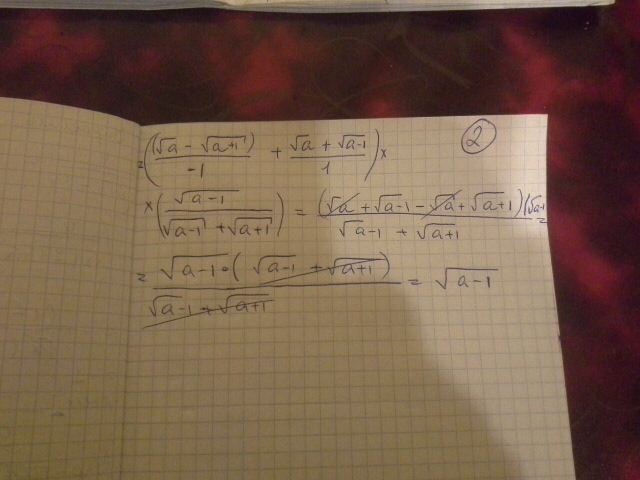 2
= ((√a - √a+1)/-1 + (√a + √a-1)/1) ×
× (√a-1/(√a-1 + √a+1)) = (√a + √a-1 - √a + √a+1)(√a-1/(√a-1 + √a+1) =
= √a-1 · (√a-1 + √a+1)/(√a-1 + √a+1) = √a-1